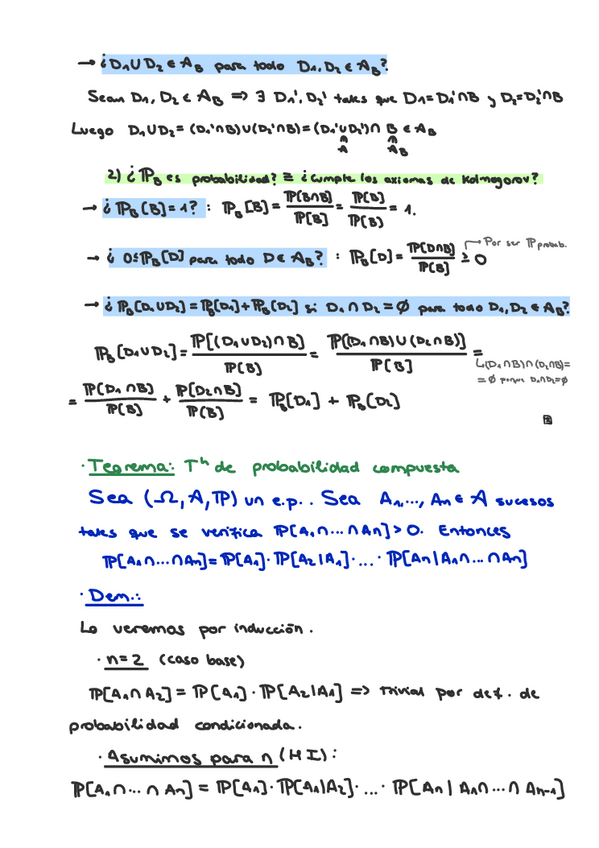 → ¿D₁∪D₂ ∈ A_B para todo D₁, D₂ ∈ A_B?
Sean D₁, D₂ ∈ A_B ⇒ ∃ D₁', D₂' tales que D₁=D₁'∩B y D₂=D₂'∩B
Luego D₁∪D₂ = (D₁'∩B)∪(D₂'∩B) = (D₁'∪D₂')∩ B ∈ A_B
∩ ∩
A A_B
2) ¿ℙ_B es probabilidad? ≡ ¿Cumple los axiomas de Kolmogorov?
→ ¿ℙ_B[B]=1? : ℙ_B[B] = ℙ[B∩B]/ℙ[B] = ℙ[B]/ℙ[B] = 1.
→ ¿ 0≤ℙ_B[D] para todo D∈A_B? : ℙ_B[D] = ℙ[D∩B]/ℙ[B] ≥ 0 → Por ser ℙ probab.
→ ¿ℙ_B[D₁∪D₂] = ℙ_B[D₁]+ℙ_B[D₂] si D₁∩D₂=∅ para todo D₁,D₂∈A_B?
ℙ_B[D₁∪D₂] = ℙ[(D₁∪D₂)∩B]/ℙ[B] = ℙ[(D₁∩B)∪(D₂∩B)]/ℙ[B] =
↳(D₁∩B)∩(D₂∩B)=
=∅ porque D₁∩D₂=∅
= ℙ[D₁∩B]/ℙ[B] + ℙ[D₂∩B]/ℙ[B] = ℙ_B[D₁] + ℙ_B[D₂]
· Teorema: Tʰ de probabilidad compuesta
Sea (Ω, A, ℙ) un e.p.. Sea A₁,..., Aₙ ∈ A sucesos
tales que se verifica ℙ[A₁∩···∩Aₙ]>0. Entonces
ℙ[A₁∩···∩Aₙ]=ℙ[A₁]·ℙ[A₂|A₁]·...·ℙ[Aₙ|A₁∩...∩Aₙ]
· Dem.:
Lo veremos por inducción.
· n=2 (caso base)
ℙ[A₁∩A₂] = ℙ[A₁]·ℙ[A₂|A₁] ⇒ trivial por def. de
probabilidad condicionada.
· Asumimos para n (HI):
ℙ[A₁∩···∩Aₙ] = ℙ[A₁]·ℙ[A₁|A₂]·...·ℙ[Aₙ | A₁∩···∩Aₙ₋₁]